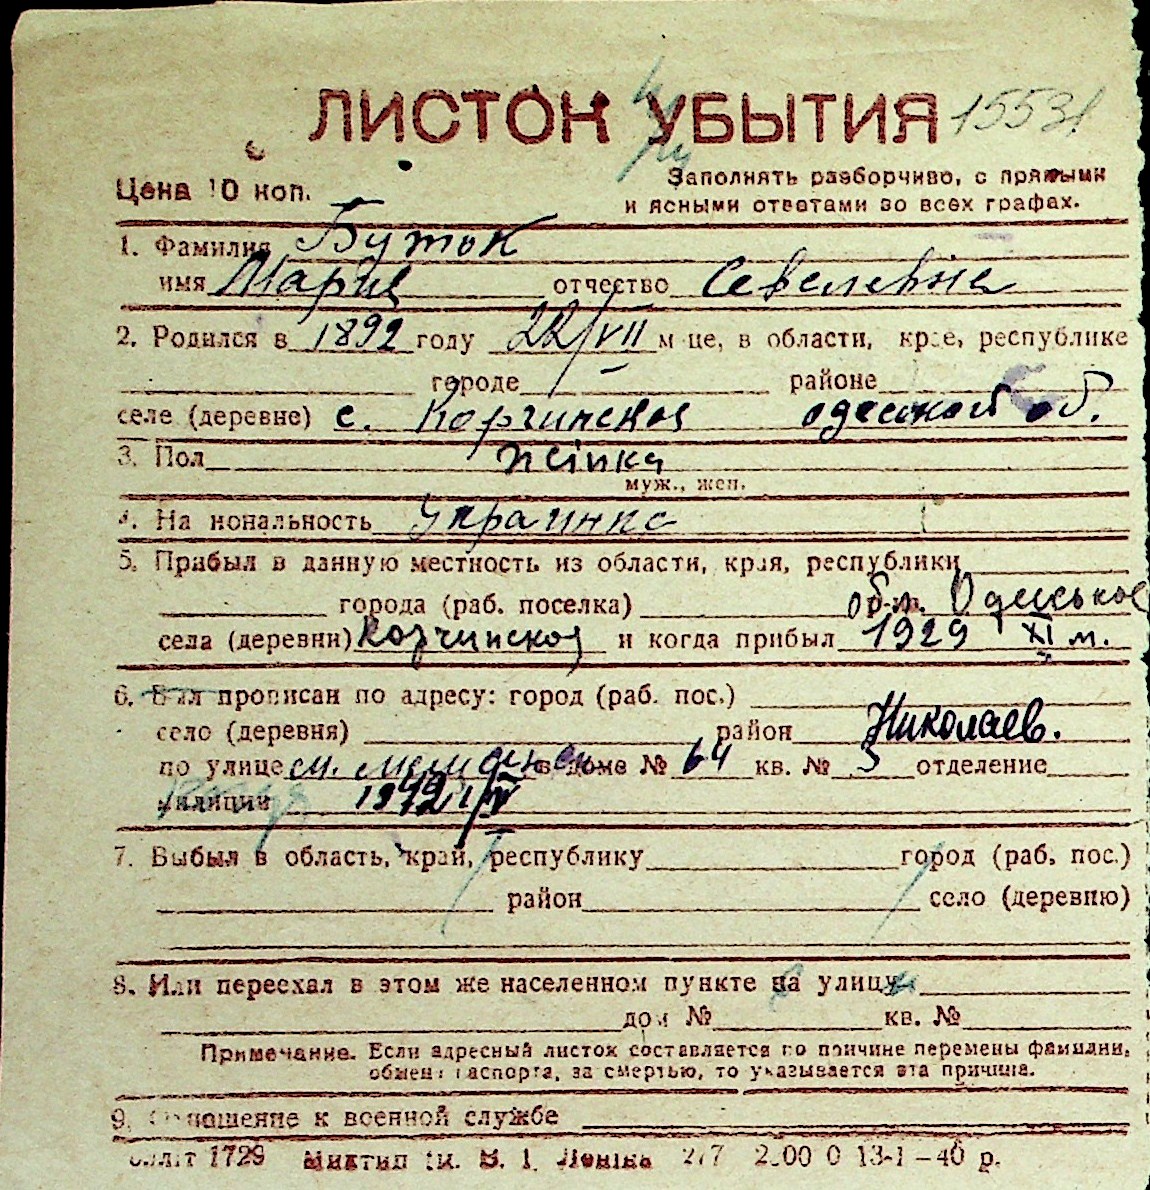 ЛИСТОК УБЫТИЯ 15531
Цена 10 коп.
Заполнять разборчиво, с прямыми
и ясными ответами во всех графах.
1. Фамилия Буток
имя Мария отчество Севелевна
2. Родился в 1892 году 22/VII м це, в области, крае, республике
городе районе
селе (деревне) с. Корчинское одеской об.
3. Пол жінка
муж., жен.
4. На нональность украинка
5. Прибыл в данную местность из области, края, республики
города (раб. поселка) обл. Одеськое
села (деревни) Корчинское и когда прибыл 1929 XI м.
6. Был прописан по адресу: город (раб. пос.)
село (деревня) район Николаев.
по улице доме № 64 кв. № 3 отделение
милиции 1942
7. Выбыл в область, край, республику город (раб. пос.)
район село (деревню)
8. Или переехал в этом же населенном пункте на улицу
дом № кв. №
Примечание. Если адресный листок составляется по причине перемены фамилии,
обмена паспорта, за смертью, то указывается эта причина.
9. Отношение к военной службе
1729 Миктип Ім. В. І. Леніна 277 2.00 0 13-1—40 р.